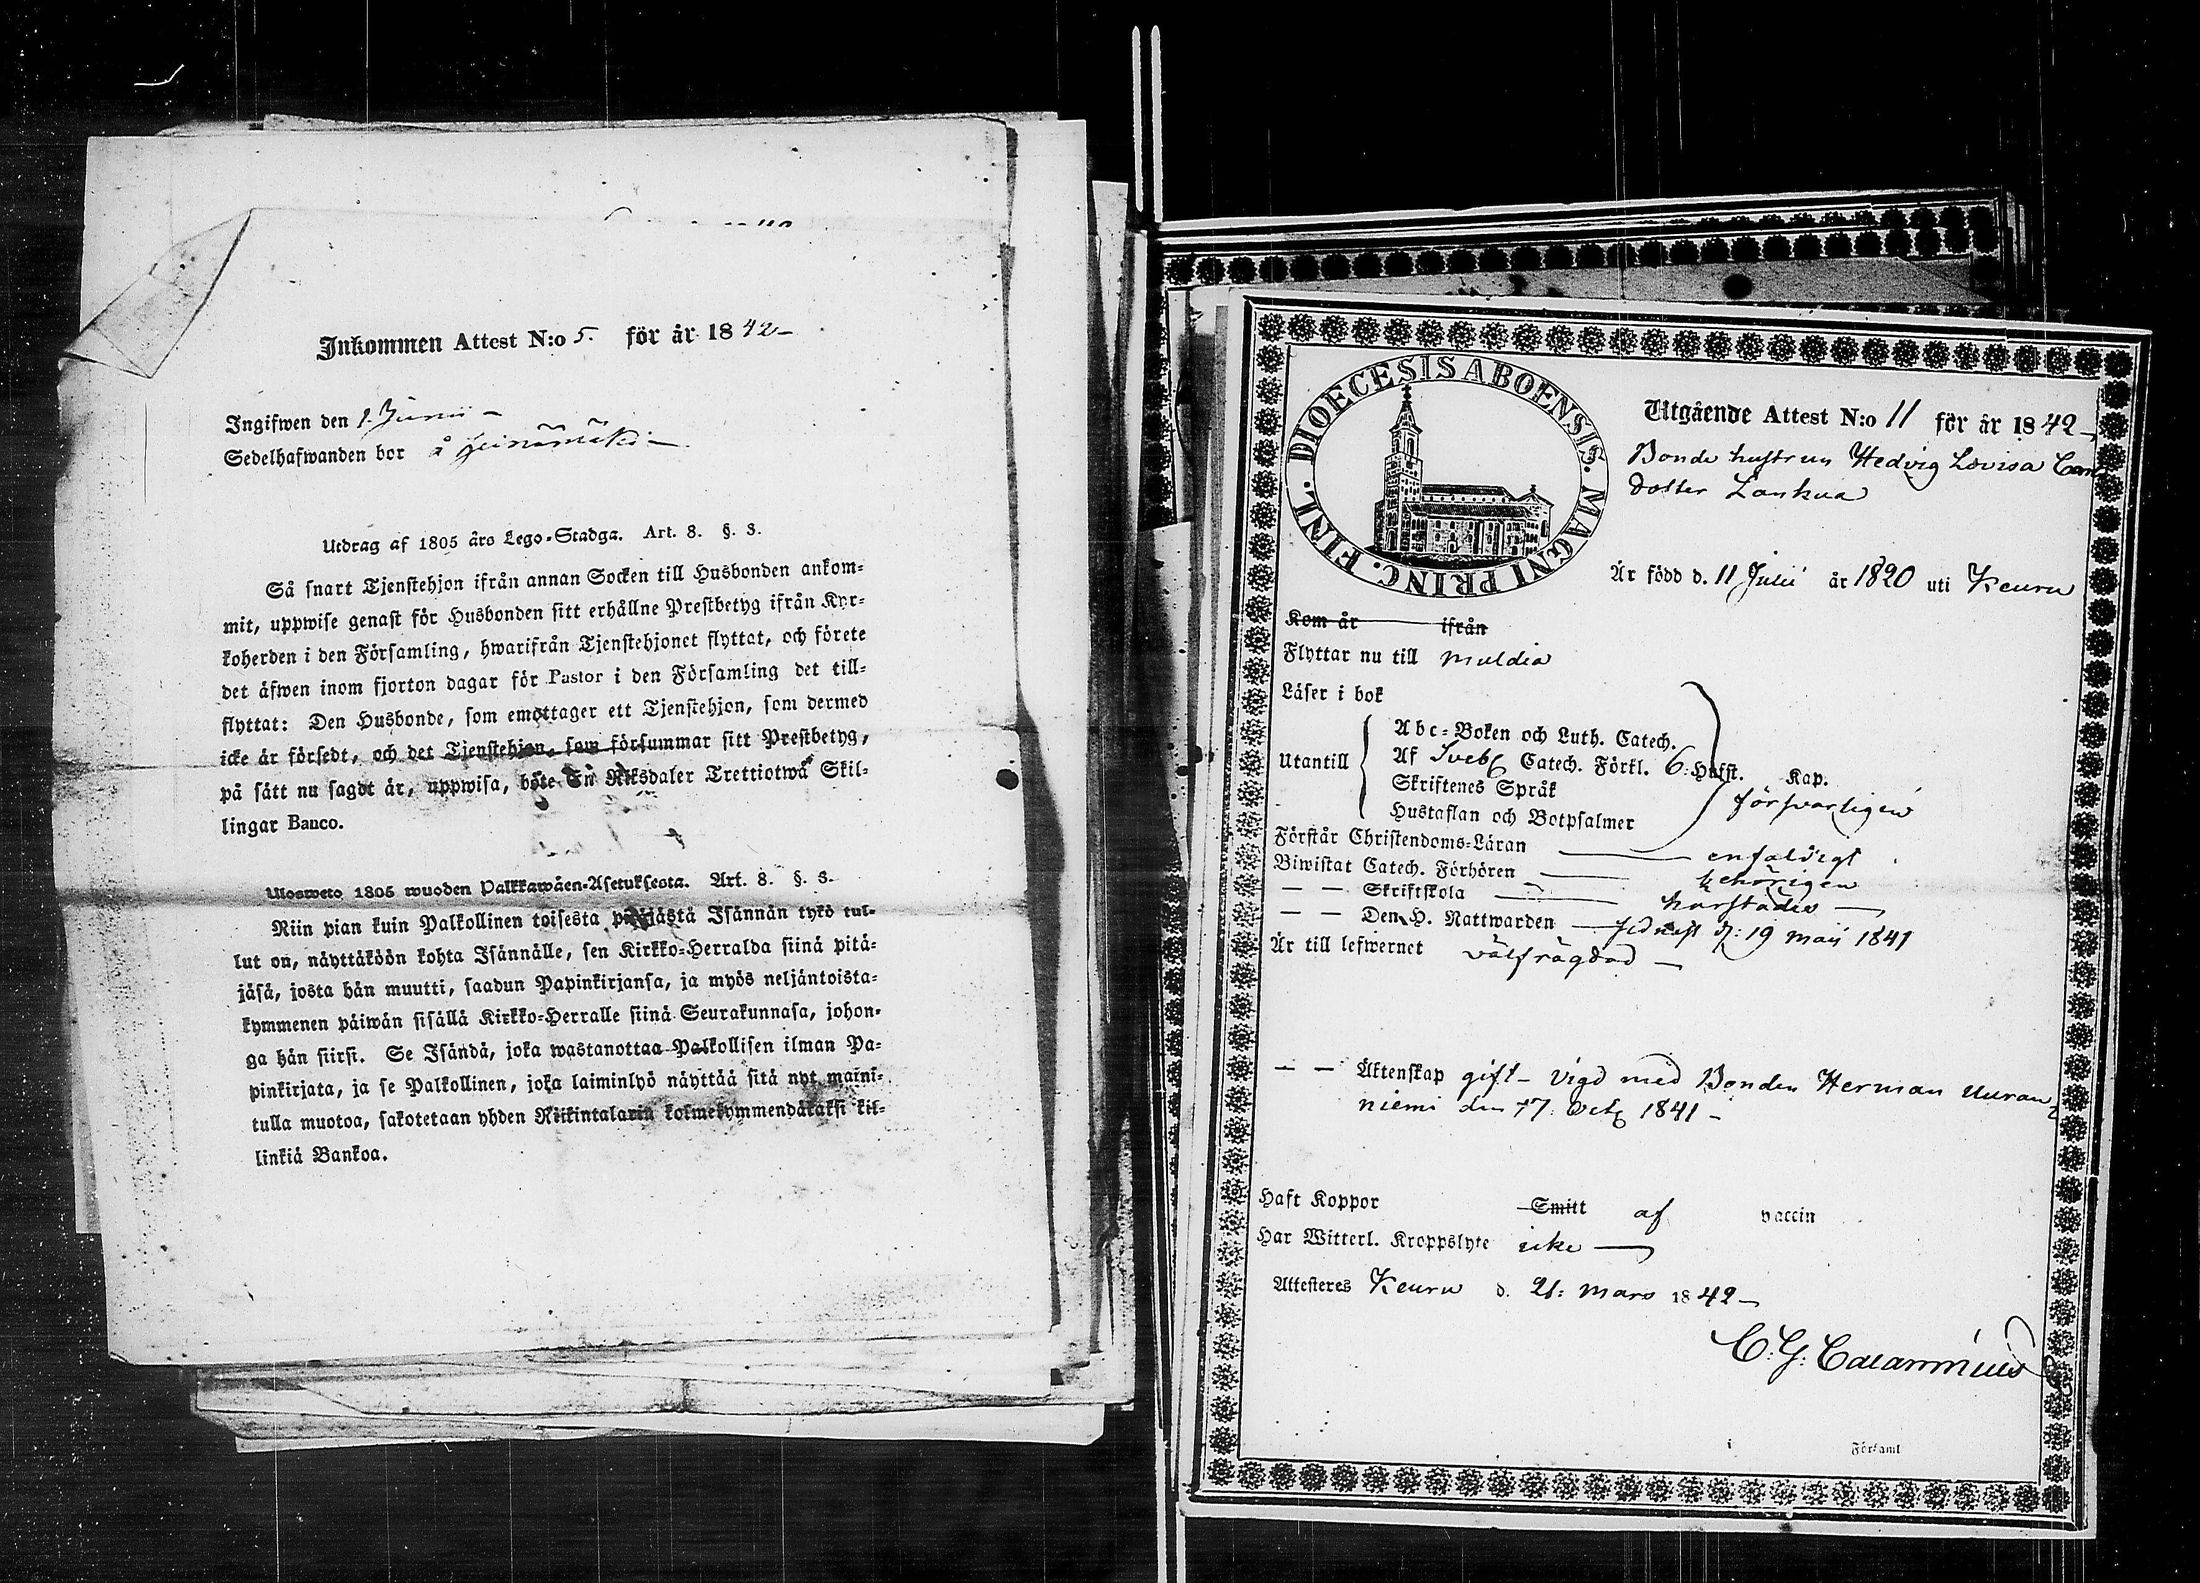 Inkommen Attest N:o 5. för år 1842 –
Ingifwen den 1. Junii –
Sedelhafwanden bor å Heinämäki –
Utdrag af 1805 års Lego-Stadga. Art. 8. §. 3.
Så snart Tjenstehjon ifrån annan Socken till Husbonden ankom-
mit, uppwise genast för Husbonden sitt erhållne Prestbetyg ifrån Kyr-
koherden i den Församling, hwarifrån Tjenstehjonet flyttat, och förete
det äfwen inom fjorton dagar för Pastor i den Församling det till-
flyttat: Den Husbonde, som emottager ett Tjenstehjon, som dermed
icke är försedt, och det Tjenstehjon, som försummar sitt Prestbetyg,
på sätt nu sagdt är, uppwisa, böte En Riksdaler Trettiotwå Skil-
lingar Banco.
Ulosweto 1805 wuoden Palkkawäen-Asetuksesta. Art. 8. §. 3.
Niin pian kuin Palkollinen toisesta pitäjästä Isännän tykö tul-
lut on, näyttäköön kohta Isännälle, sen Kirkko-Herralda siinä pitä-
jäsä, josta hän muutti, saadun Papinkirjansa, ja myös neljäntoista-
kymmenen päiwän sisällä Kirkko-Herralle siinä Seurakunnasa, johon-
ga hän siirsi. Se Isändä, joka wastanottaa Palkollisen ilman Pa-
pinkirjata, ja se Palkollinen, joka laiminlyö näyttää sitä nyt maini-
tulla muotoa, sakotetaan yhden Riikintalarin kolmekymmendäkaksi kil-
linkiä Bankoa.
DIOECESIS ABOENSIS. MAGNI PRINC. FINL.
Utgående Attest N:o 11 för år 1842 –
Bonde hustrun Hedvig Lovisa
dotter Lankua
Är född d. 11 Julii år 1820 uti Keuru
Kom år ifrån
Flyttar nu till Muldia
Läser i bok
Utantill
Abc-Boken och Luth. Catech.
Af Sveb. Catech. Förkl. 6: Hufst. Kap.
Skriftenes Språk
Hustaflan och Botpsalmer
försvarligen
Förstår Christendoms-Läran — enfaldigt
Biwistat Catech. Förhören — behörigen
— — Skriftskola — harstädes —
— — Den H. Nattwarden — sednast d: 19 Maii 1841
Är till lefwernet välfrägdad —
— — Äktenskap gift – vigd med Bonden Herman Uuran-
niemi den 17. Oct. 1841 –
Haft Koppor Smitt af vaccin
Har Witterl. Kroppslyte icke —
Attesteres Keuru d. 21: Mars 1842 –
C. G. Calamnius
Församl